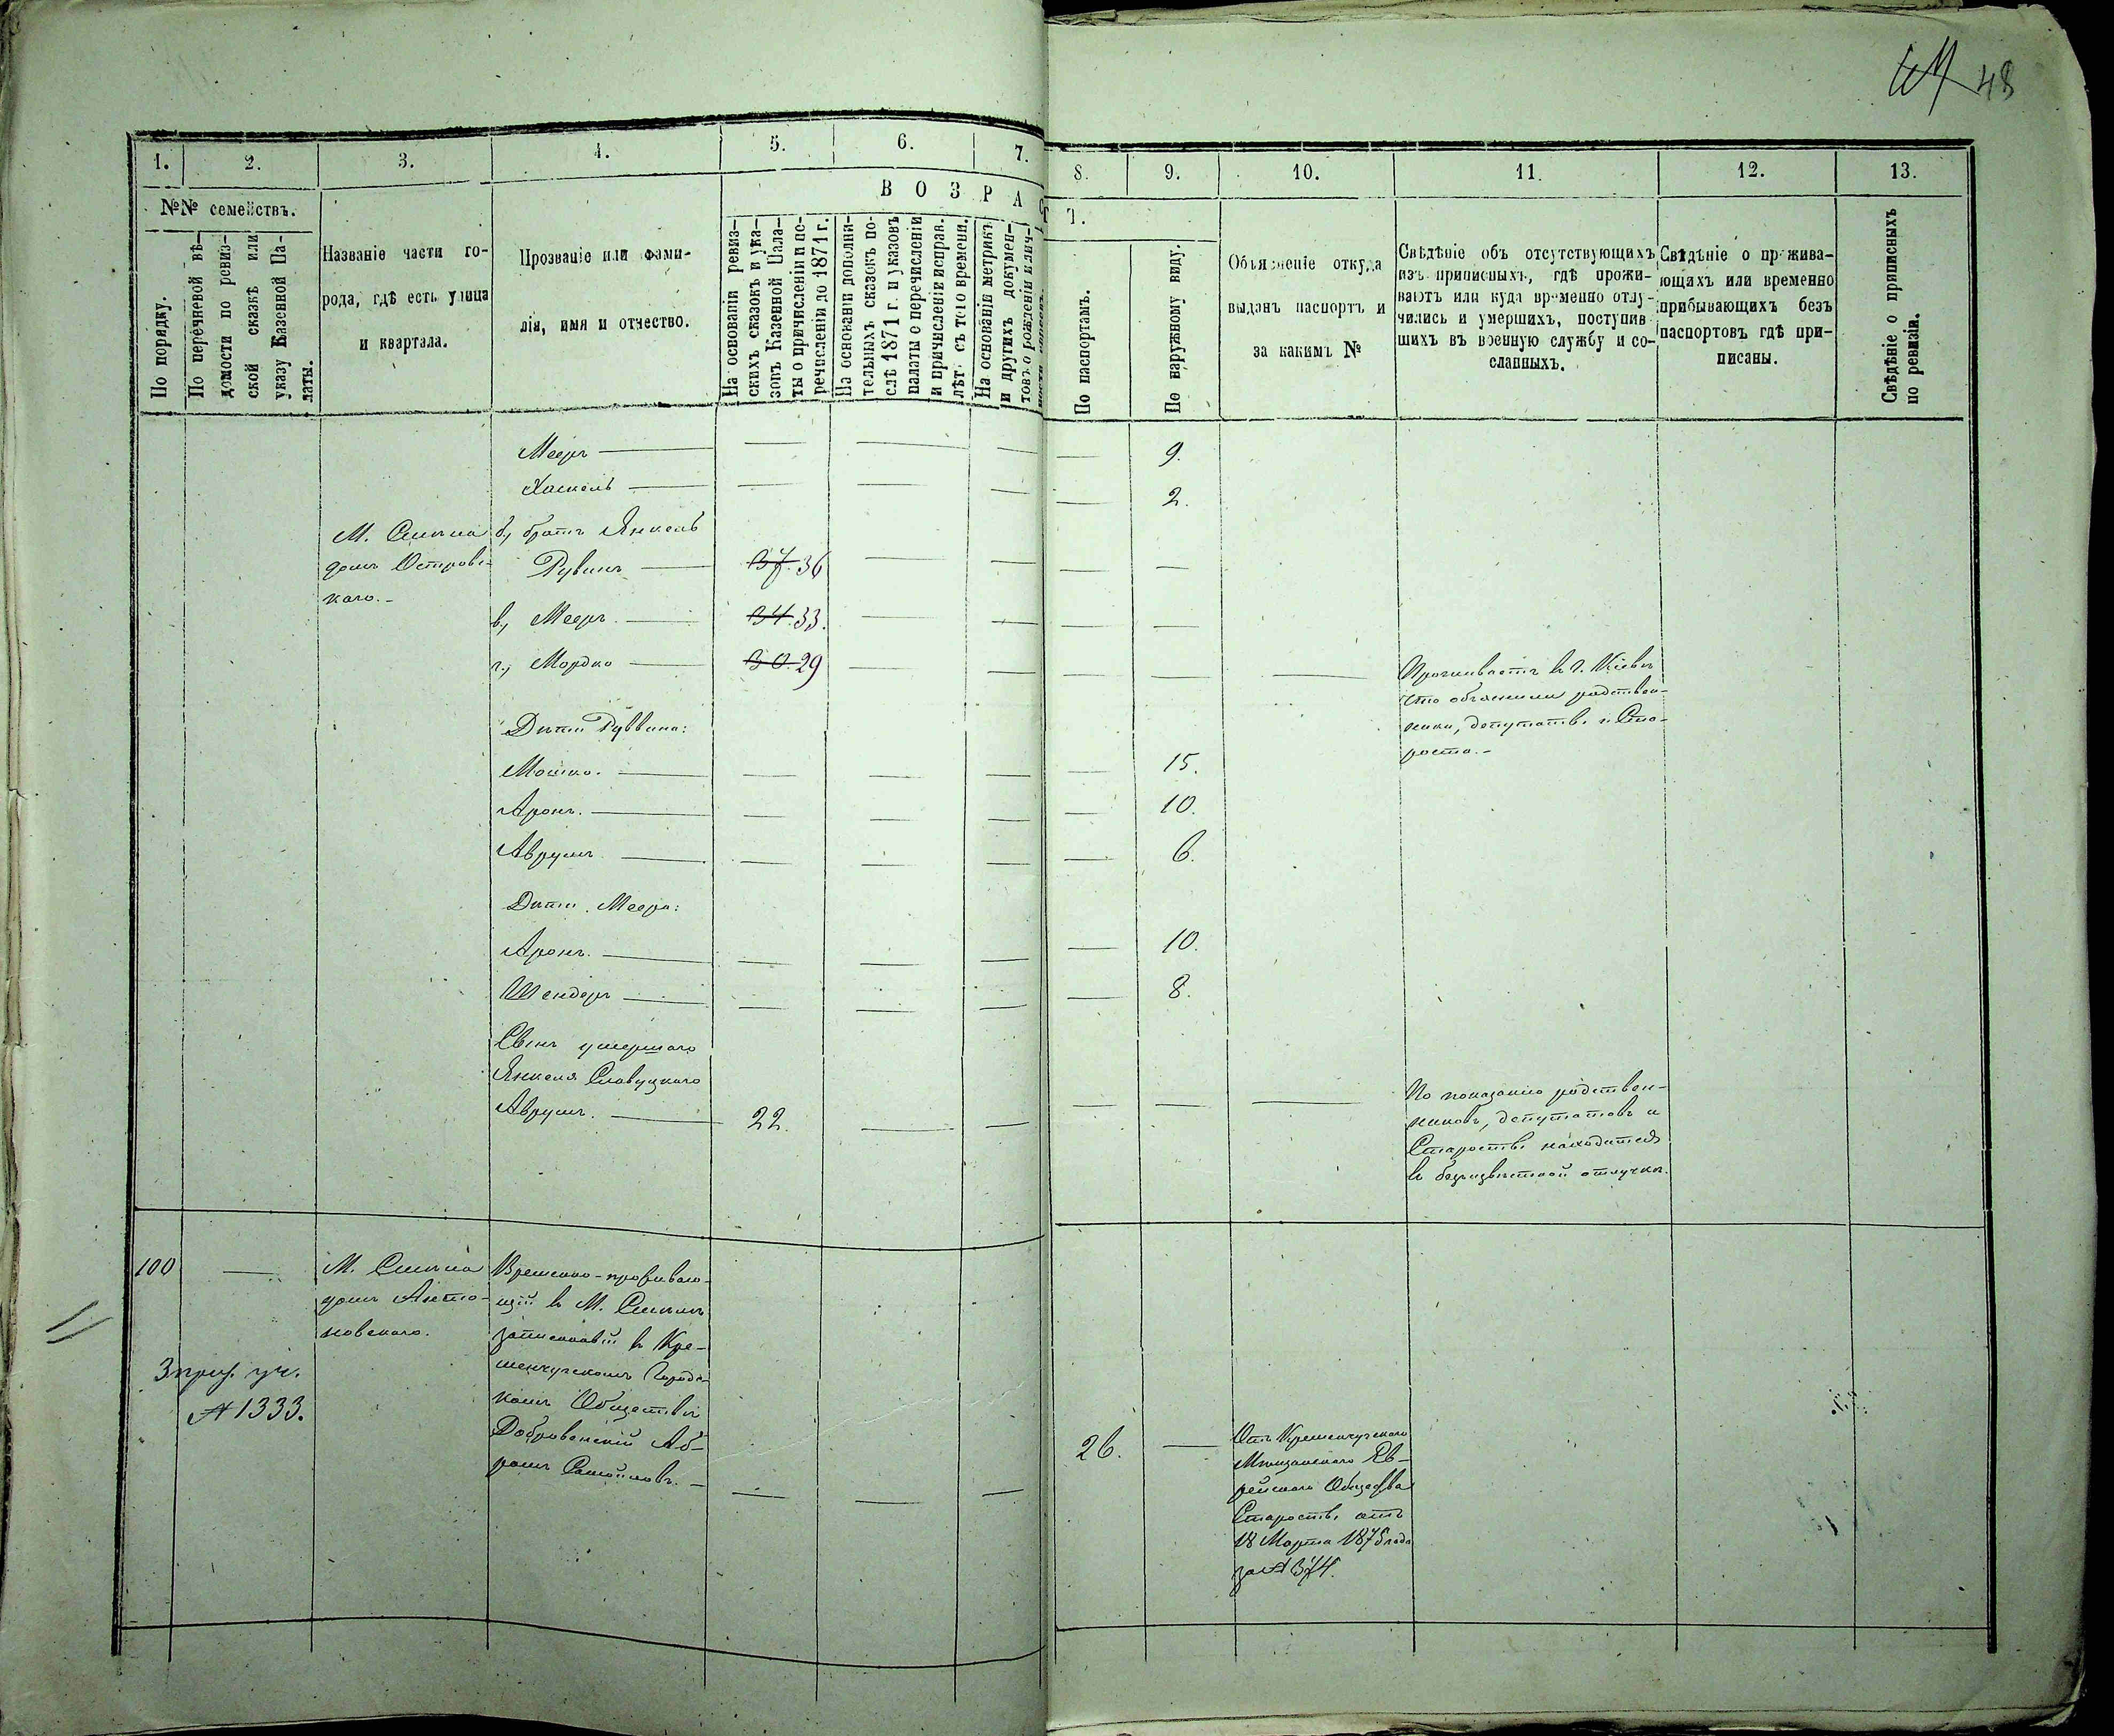 48
1. 2. 3. 4. 5. 6. 7. 8. 9. 10. 11. 12. 13.
№№ семействъ.
По порядку.
По перечневой вѣ-
домости по ревиз-
ской сказкѣ или
указу Казенной Па-
латы.
Названіе части го-
рода, гдѣ есть улица
и квартала.
Прозваніе или фами-
лія, имя и отчество.
ВОЗРАСТ
Т.
На основаніи ревиз-
скихъ сказокъ и ука-
зовъ Казенной Пала-
ты о причисленіи и пе-
речисленіи до 1871 г.
На основаніи дополни-
тельныхъ сказокъ по-
слѣ 1871 г. и указовъ
палаты о перечисленіи
и причисленіи исправ.
лѣт. съ того времени.
На основаніи метрикъ
и другихъ докумен-
товъ о рожденіи и лич-
По паспортамъ.
По наружному виду.
Объясненіе откуда
выданъ паспортъ и
за какимъ №
Свѣдѣніе объ отсутствующихъ
изъ приписныхъ, гдѣ прожи-
ваютъ или куда временно отлу-
чились и умершихъ, поступив
шихъ въ военную службу и со-
сланныхъ.
Свѣдѣніе о прожива-
ющихъ или временно
прибывающихъ безъ
паспортовъ гдѣ при-
писаны.
Свѣдѣніе о приписныхъ
по ревизіи.
Мееръ — — — — — 9.
Хаскель — — — — — 2.
М. Смѣла
домъ Островс-
каго.-
б, братъ Янкель
Рувинъ — 37. 36 — — — —
в, Мееръ — 34. 33. — — — —
г, Мордко — 30. 29 — — — — —
Проживаетъ въ г. Кіевѣ
что объяснили родствен-
ники, депутаты и Ста-
роста.-
Дѣти Руввина:
Мошко. — — — — — 15.
Аронъ. — — — — — 10.
Аврумъ — — — — — 6.
Дѣти Меера:
Аронъ. — — — — — 10.
Шендеръ — — — — — 8.
Сынъ умершаго
Янкеля Славуцкаго
Аврумъ. — 22. — — — — —
По показанію родствен-
никовъ, депутатовъ и
Старосты находится
въ безъизвѣстной отлучкѣ.
100 —
М. Смѣла
домъ Анто-
новскаго.
3 приз. уч.
№ 1333.
Временно-проживаю-
щій въ М. Смѣлѣ
записанный въ Кре-
менчугскомъ Городс-
комъ Обществѣ
Добровенскій Аб-
рамъ Самойловъ. -
— — — 26. —
Отъ Кременчугскаго
Мѣщанскаго Ев-
рейскаго Общества
Старосты отъ
18 Марта 1875 года
за № 374.